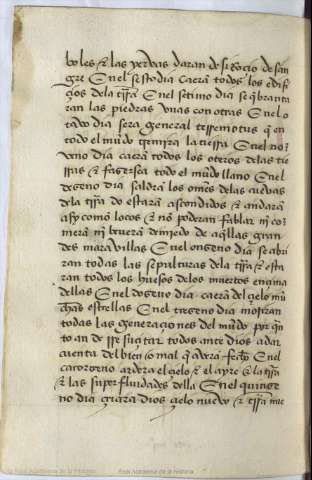 boles & las yervas daran de si Rocio de san
gre Enel sesto dia caeran todos los edifi
çios dela trra Enel setimo dia se q̃branta
ran las piedras vnas con otras Enel o
tauo dia sera general terremotus q̃ en
todo el mũdo tremira la tierra Enel no
ueno dia caeran todos los oteros delas tie
rras & fazersea todo el mũdo llano Enel
dezeno dia saldrã los om̃es delas cueuas
dela trra do estarã ascondidos & andarã
asy como locos & no poderan fablar nj co
merã nj beuerã de mjedo de aq̃llas gran
des marauillas Enel onzeno dia se abri
ran todas las sepulturas dela trra & esta
ran todos los huesos delos muertos ençima
dellas Enel dozeno dia caerã del çielo mu
chas estrellas Enel trezeno dia moriran
todas las generaçiones del mũdo por q̃n
to an de rresuçitar todos ante dios a dar
cuenta del bien o mal q̃ auera fecho Enel
catorzeno ardera el çielo & el ayre & la trra
& las superfluidades della Enel quinze
no dia dios çielo nueuo & trra nue
Real Academia de la Historia